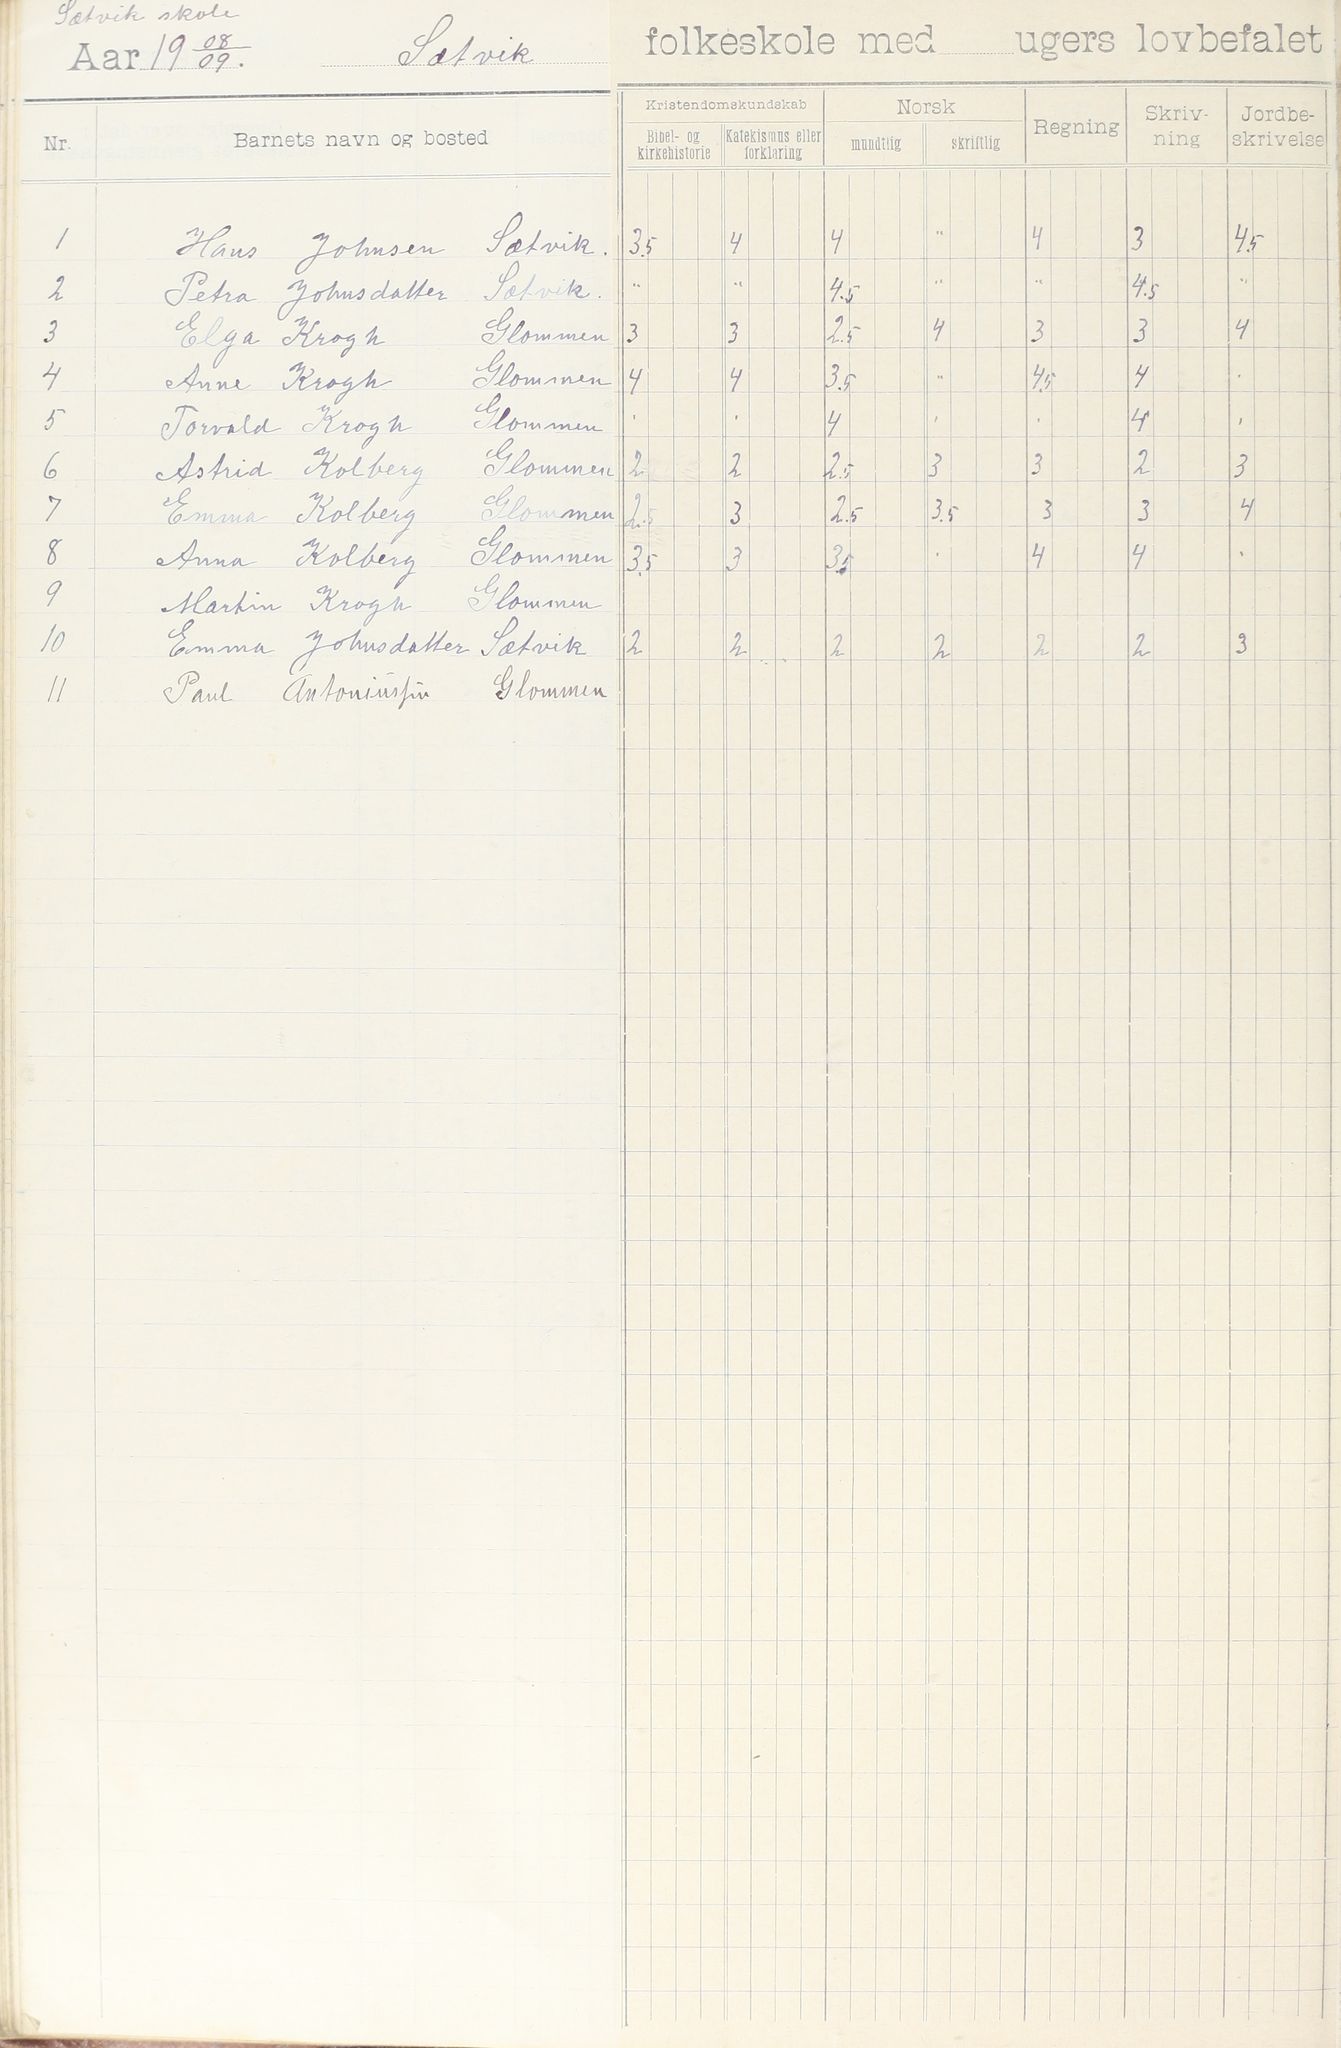 Sætvik skole
Aar 19 08/09. Sætvik folkeskole med ugers lovbefalet
Nr. Barnets navn og bosted Kristendomskundskab Norsk Regning Skriv-ning Jordbe-skrivelse
Bibel- og kirkehistorie Katekismus eller forklaring mundtlig skriftlig
1 Hans Johnsen Sætvik. 3.5 4 4 " 4 3 4.5
2 Petra Johnsdatter Sætvik. " " 4.5 " " 4.5 "
3 Elga Krogh Glommen 3 3 2.5 4 3 3 4
4 Anne Krogh Glommen 4 4 3.5 " 4.5 4 .
5 Torvald Krogh Glommen . . 4 . . 4 .
6 Astrid Kolberg Glommen 2 2 2.5 3 3 2 3
7 Emma Kolberg Glommen 2.5 3 2.5 3.5 3 3 4
8 Anna Kolberg Glommen 3.5 3 3.5 . 4 4 .
9 Martin Krogh Glommen
10 Emma Johnsdatter Sætvik 2 2 2 2 2 2 3
11 Paul Glommen